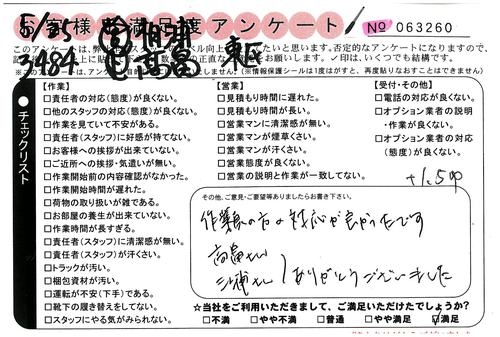 お客様満足度アンケート
No 063260
5/25
3484
東区
このアンケートは、
ています。否定的なアンケートになりますので、
お願いします。✓印は、いくつでも結構です。
(※情報保護シールは1度はがすと、再度貼りなおすことはできません)
チェックリスト
【作業】
□責任者の対応(態度)が良くない。
□他のスタッフの対応(態度)が良くない。
□作業を見ていて不安がある。
□責任者(スタッフ)に好感が持てない。
□お客様への挨拶が出来ていない。
□ご近所への挨拶・気遣いが無い。
□作業開始前の内容確認がなかった。
□作業開始時間が遅れた。
□荷物の取り扱いが雑である。
□お部屋の養生が出来ていない。
□作業時間が長すぎる。
□責任者(スタッフ)に清潔感が無い。
□責任者(スタッフ)が汗くさい。
□トラックが汚い。
□梱包資材が汚い。
□運転が不安(下手)である。
□靴下の履き替えをしてない。
□スタッフにやる気がみられない。
【営業】
□見積もり時間に遅れた。
□見積もり時間が長い。
□営業マンに清潔感が無い。
□営業マンが煙草くさい。
□営業マンが汗くさい。
□営業態度が良くない。
□営業の説明と作業が一致してない。
【受付・その他】
□電話の対応が良くない。
□オプション業者の説明
・作業が良くない。
□オプション業者の対応
(態度)が良くない。
その他、ご意見・ご要望等ありましたらお書き下さい。
作業員の方の対応が良かったです
高畠さん
三浦さん
ありがとうございました
☆当社をご利用いただきまして、ご満足いただけたでしょうか?
□不満 □やや不満 □普通 □やや満足 ☑満足